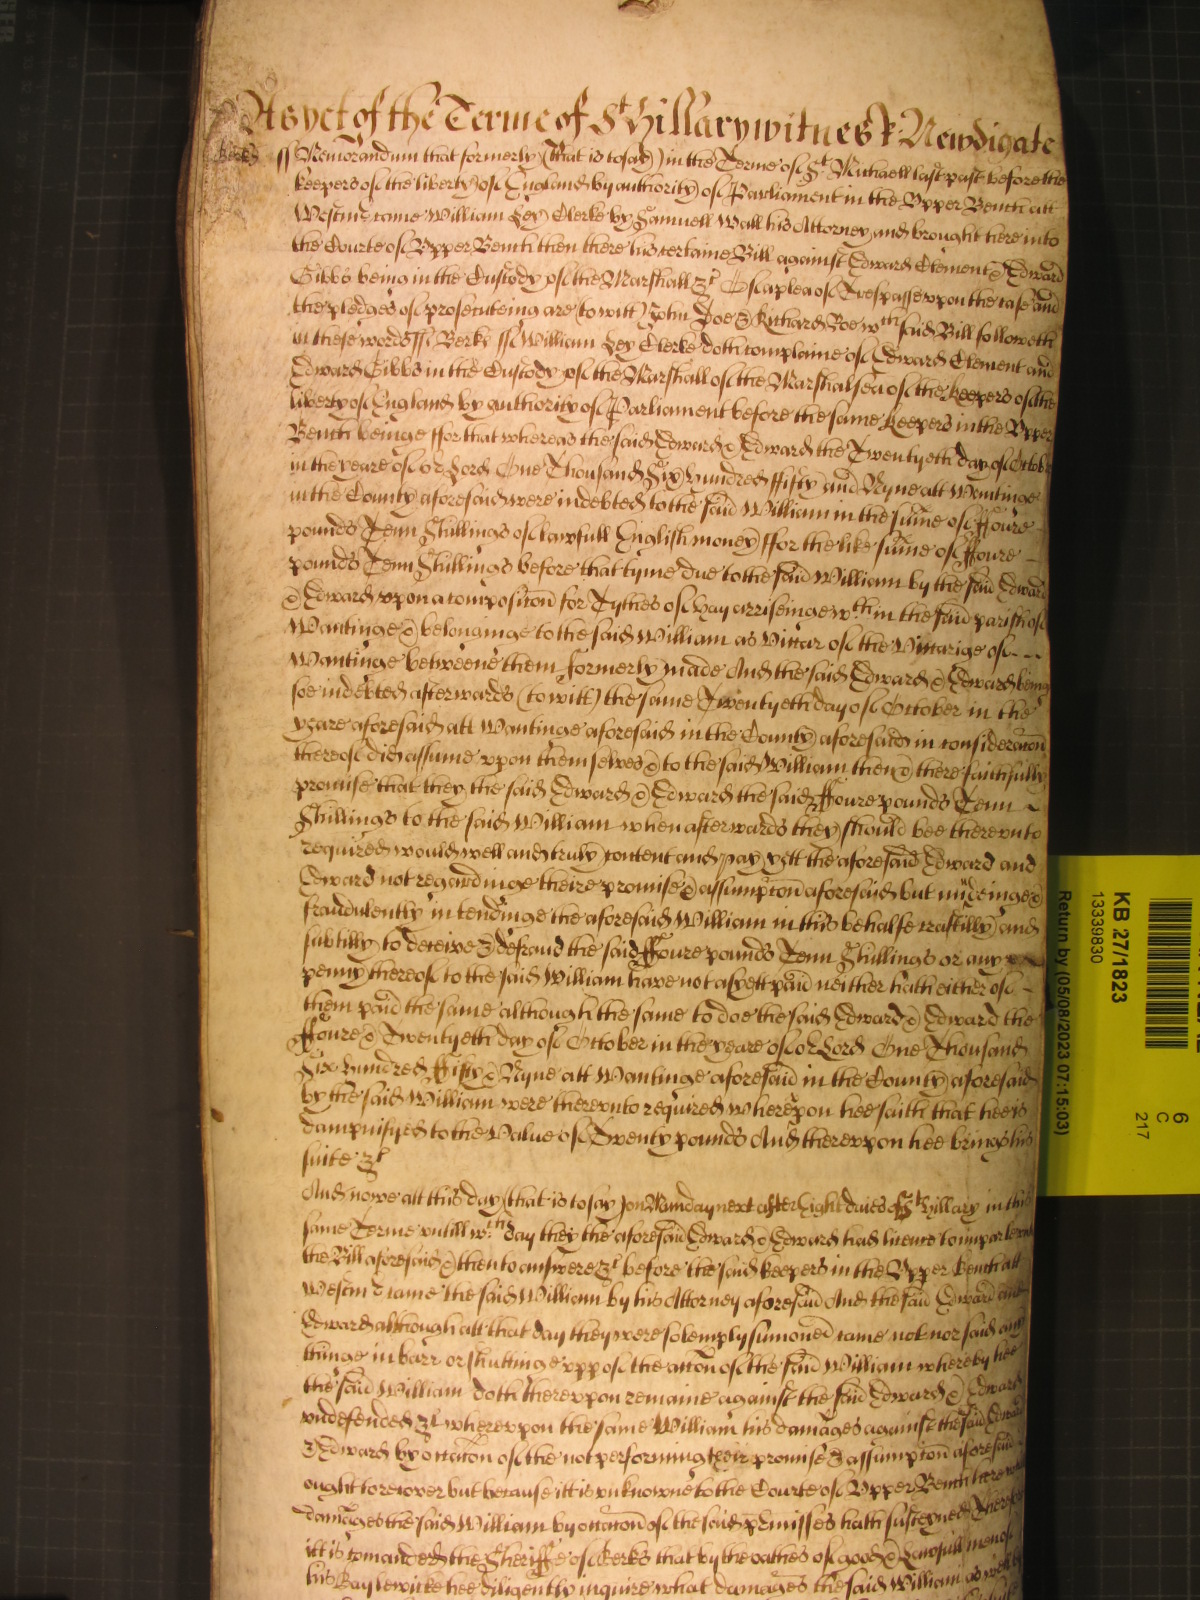 As yet of the Terme of St Hillary witnes R: Newdigate
Berks ss Memorandum that formerly (that is to say) in the Terme of St. Michaell last past before the
keepers of the liberty of England by authority of Parliament in the Vpper Bench att
Westmr came William Ley Clerke by Samuell Wall his Attorney and brought here into
the Courte of Vpper Bench then there his certaine Bill against Edward Clement & Edward
Gibbs being in the Custody of the Marshall &c Of a plea of Trespasse vpon the case and
the pledges of prosecuteing are (to witt) John Doe & Richard Roe wch said Bill followeth
in these words ss Berks ss William Ley Clerke doth complaine of Edward Clement and
Edward Gibbs in the Custody of the Marshall of the Marshalsea of the keepers of the
liberty of England by authority of Parliament before the same keepers in the Vpper
Bench beinge ffor that whereas the said Edward & Edward the Twentyeth day of October
in the yeare of or Lord One Thousand Six hundred ffifty and Nyne att Wantinge
in the County aforesaid were indebted to the said William in the sume of ffoure
pounds Tenn Shillings of lawfull English money ffor the like sume of ffoure
pounds Tenn Shillings before that tyme due to the said William by the said Edward
& Edward vpon a composicon for Tythes of hay arriseinge wthin the said parish of
Wantinge & belonginge to the said William as Viccar of the Viccarige of
Wantinge betweene them formerly made And the said Edward & Edward being
soe indebted afterwards (to witt) the same Twentyeth day of October in the
yeare aforesaid att Wantinge aforesaid in the County aforesaid in consideracon
thereof did assume vpon themselves & to the said William then & there faithfully
promise that they the said Edward & Edward the said ffoure pounds Tenn
Shillings to the said William when afterwards they should bee therevnto
required would well and truly content and pay yett the aforesaid Edward and
Edward not regardinge theire promise & assumpcon aforesaid but mindeinge &
fraudulently intendinge the aforesaid William in this behalfe craftilly and
subtilly to deceive & defraud the said ffoure pounds Tenn Shillings or any
penny thereof to the said William have not as yett paid neither hath either of
them paid the same although the same to doe the said Edward & Edward the
ffoure & Twentyeth day of October in the yeare of or Lord One Thousand
Six hundred ffifty & Nyne att Wantinge aforesaid in the County aforesaid
by the said William were therevnto required wherevpon hee saith that hee is
dampnifyed to the Value of Twenty pounds And therevpon hee brings his
suite &c
And nowe att this day (that is to say) on Munday next after Eight daies of St Hillary in this
same Terme vntill wch day they the aforesaid Edward & Edward had licence to imparle vnto
the Bill aforesaid & then to answere &c before the said keepers in the Vpper Bench att
Westmr came the said William by his Attorney aforesaid And the said Edward and
Edward although att that day they were solemply sumoned came not nor said any
thinge in barr or shuttinge vpp of the accon of the said William whereby hee
the said William doth therevpon remaine against the said Edward & Edward
vndefended &c wherevpon the same William his damages against the said Edward
& Edward by occacon of the not performing their promise & assumpcon aforesaid
ought to recover but because itt is vnknowne to the Courte of Vpper Bench here what
damages the said William by occacon of the said premisses hath susteyned Therefore
itt is comanded the Sheriffe of Berks that by the oathes of good & lawfull men of
his Baylewicke hee diligently inquire what damages the said William as well by
KB 27/1823
13339830
Return by (05/08/2023 07:15:03)
6
C
217